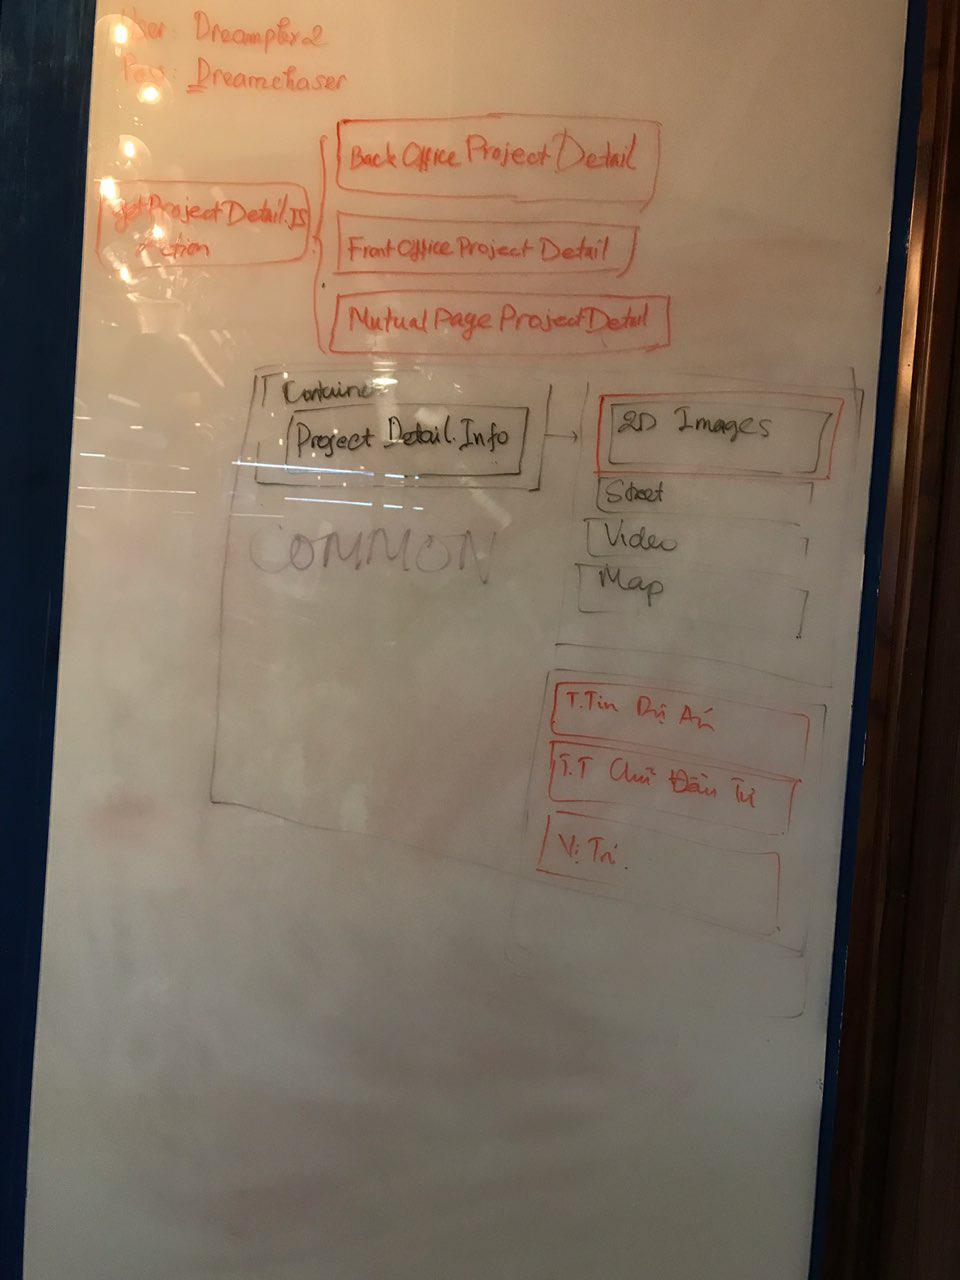 User: Dreamplex2
Pass: Dreamchaser
Back Office Project Detail
getProjectDetail.JS
Action
Front Office Project Detail
Mutual Page Project Detail
Container
Project Detail.Info
2D Images
Street
Video
Map
COMMON
T.Tin Dự Án
T.T Chủ Đầu Tư
Vị Trí.